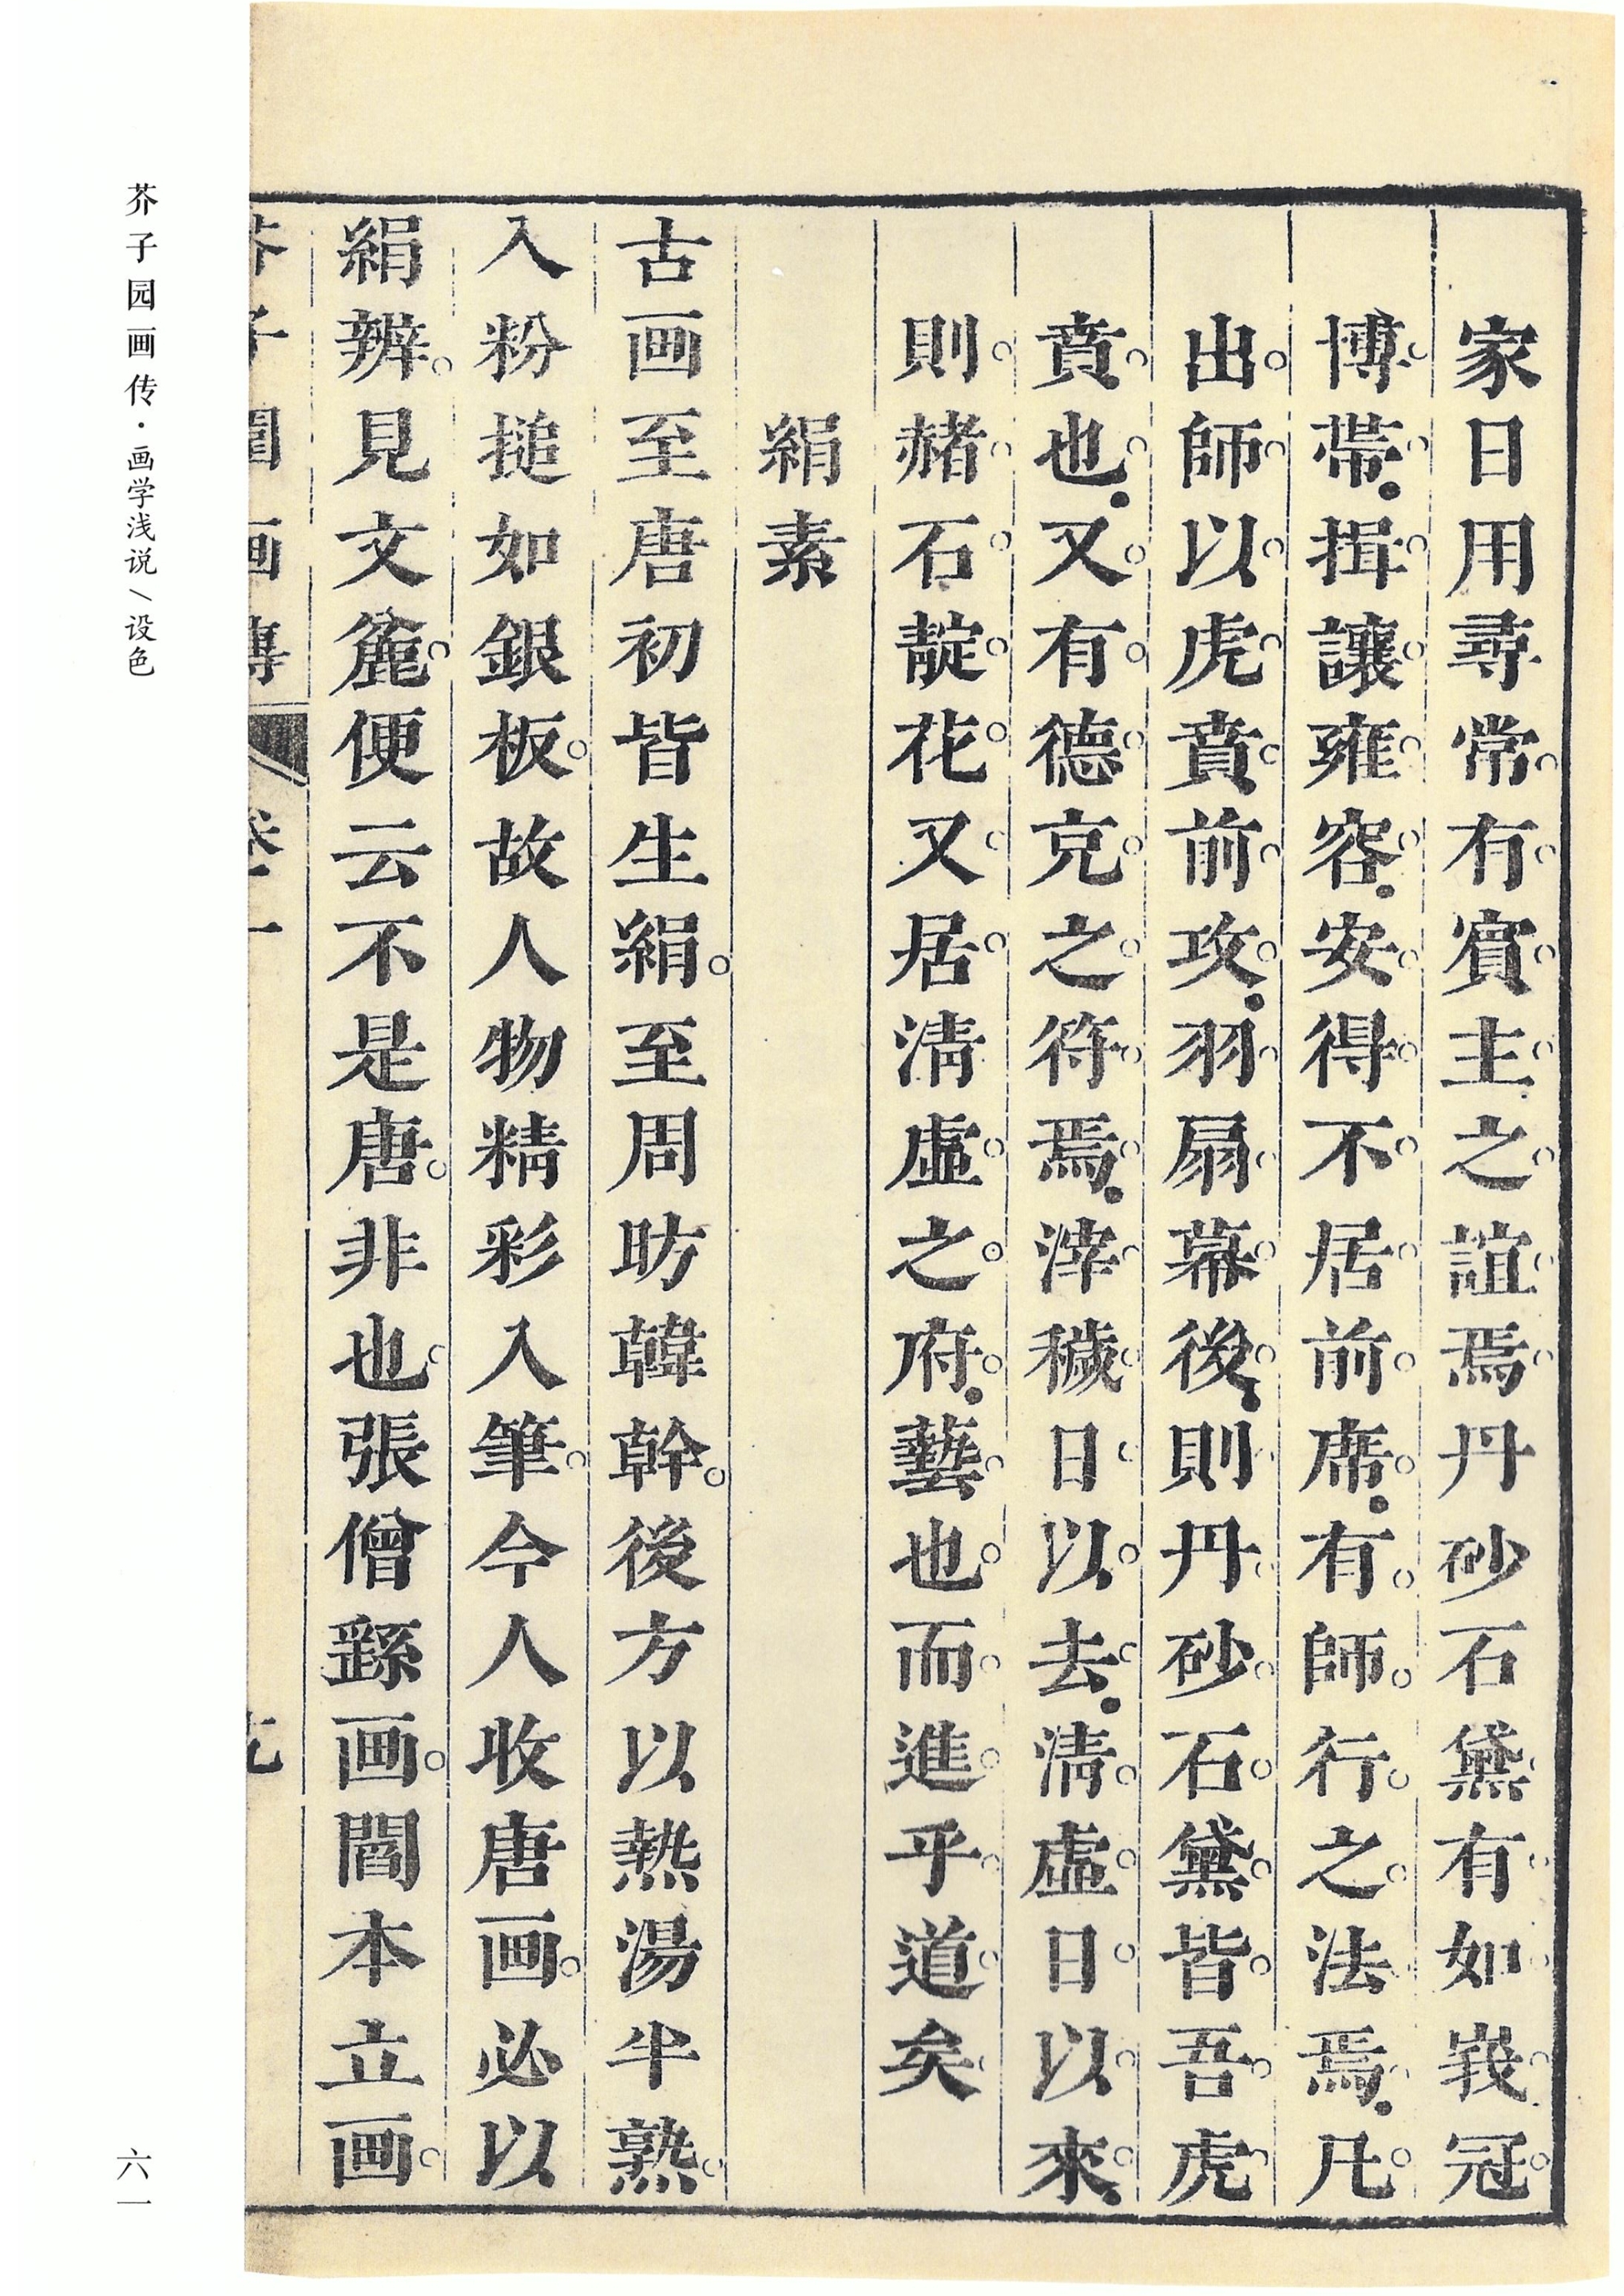 家日用尋常有賔主之誼焉丹砂石黛有如峩冠
博帶揖讓雍容安得不居前席有師行之法焉凡
出師以虎賁前攻羽扇幕後則丹砂石黛皆吾虎
賁也又有德克之符焉滓穢日以去清虛日以來
則赭石靛花又居清虛之府藝也而進乎道矣
絹素
古画至唐初皆生絹至周昉韓幹後方以熱湯半熟
入粉搥如銀板故人物精彩入筆今人收唐画必以
絹辨見文麄便云不是唐非也張僧繇画閻本立画
芥子園画傳 卷一
芥子园画传·画学浅说/设色
六一